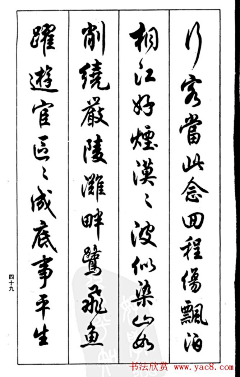 行客當此念回程傷飄泊
桐江好煙漠〻波似染山如
削繞嚴陵灘畔鷺飛魚
躍遊宦區〻成底事平生
四十九
书法欣赏 www.yac8.com